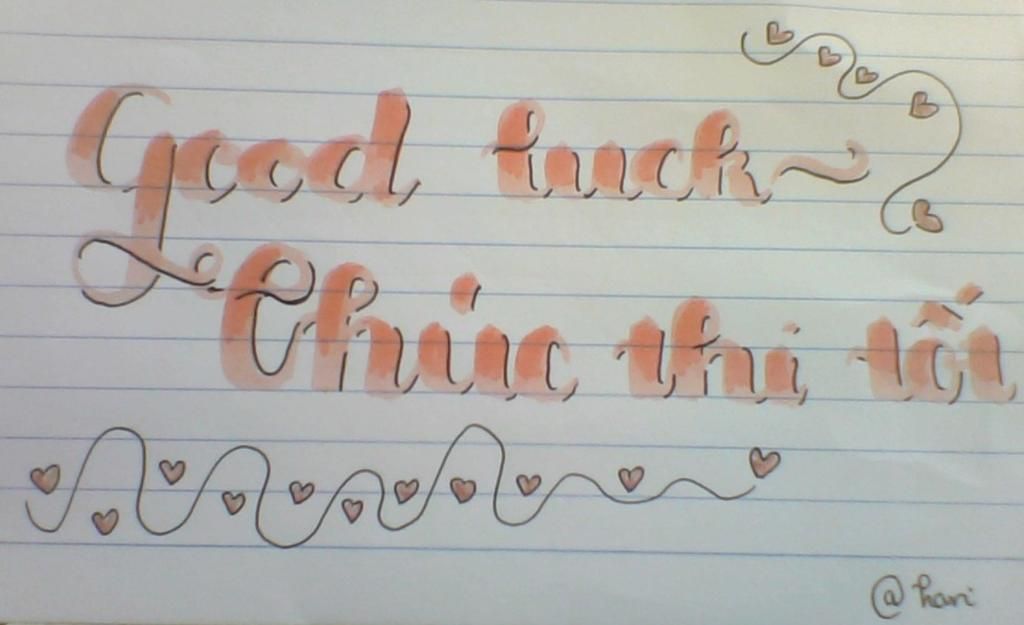 Good luck
Chúc thi tốt
@hari